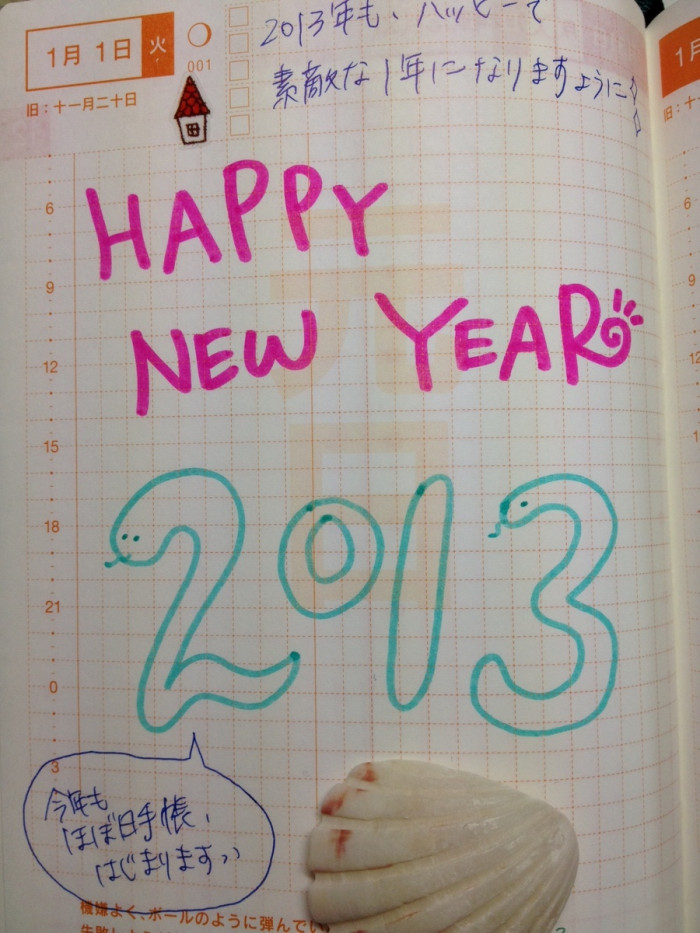 1月 1日 火
001
旧：十一月二十日
2013年も、ハッピーで
素敵な1年になりますように
1月
旧：十
HAPPY
NEW YEAR
元日
2013
6
9
12
15
18
21
0
3
6
9
12
今年も
ほぼ日手帳、
はじまりますっっ
機嫌よく、ボールのように弾んでい